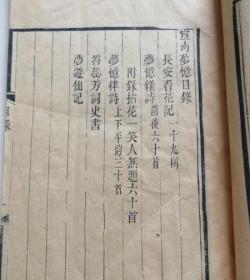 宣南夢憶目錄
長安看花記一十九回
夢憶雜詩前後六十首
附錄拈花一笑人無題六十首
夢憶律詩上下平韵三十首
答蕊芳詞史書
夢遊仙記
目錄